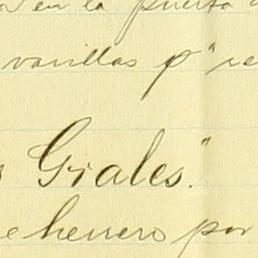 en la puerta
varillas p" re
Giales."
herrero por